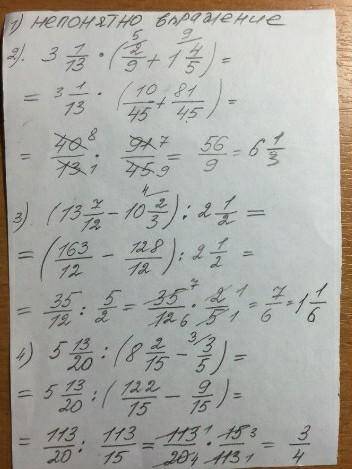 1) непонятно выражение
2). 3 1/13 · (5 2/9 + 9 1 4/5) =
= 3 1/13 · (10/45 + 81/45) =
= 40 8/13 1 · 91 7/45 9 = 56/9 = 6 1/3
3) (13 7/12 - 10 4 2/3) : 2 1/2 =
= (163/12 - 128/12) : 2 1/2 =
= 35/12 : 5/2 = 35 7/12 6 · 2 1/5 1 = 7/6 = 1 1/6
4) 5 13/20 : (8 2/15 - 3 3/5) =
= 5 13/20 : (122/15 - 9/15) =
= 113/20 : 113/15 = 113 1/20 4 · 15 3/113 1 = 3/4